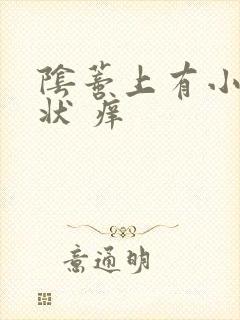 陰蒂上有小
状 痒
意通明